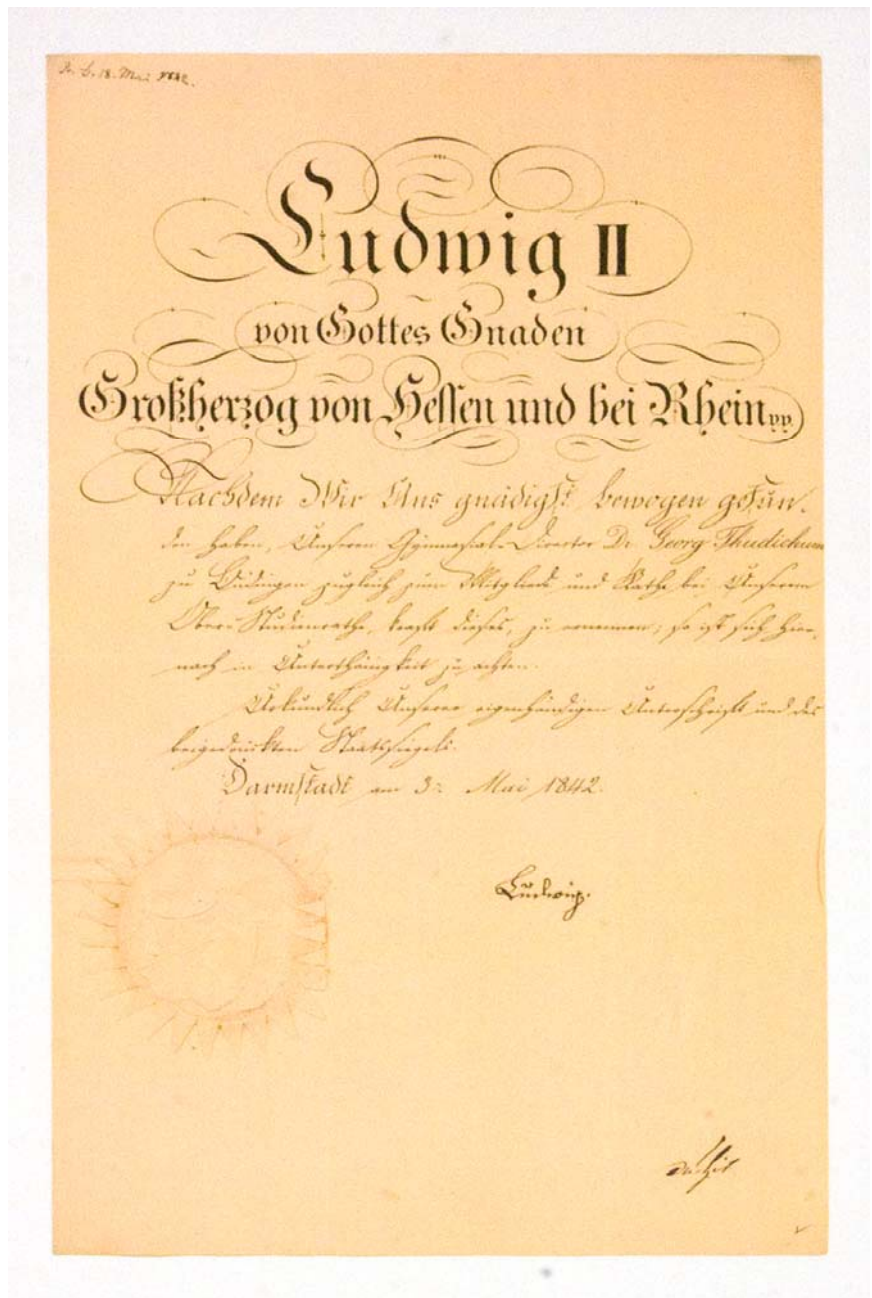 18. Mai 1842.
Ludwig II
von Gottes Gnaden
Großherzog von Hessen und bei Rhein pp.
Nachdem Wir Uns gnädigst bewogen gefun-
den haben, Unseren Gymnasial-Director Dr. Georg Thudichum
zu Büdingen zugleich zum Mitgliede und Rathe bei Unserem
Ober-Studienrathe, kraft dieses, zu ernennen; so ist sich hier-
nach in Unterthänigkeit zu achten.
Urkundlich Unserer eigenhändigen Unterschrift und des
beigedrückten Staatssiegels.
Darmstadt am 3. Mai 1842.
Ludwig.